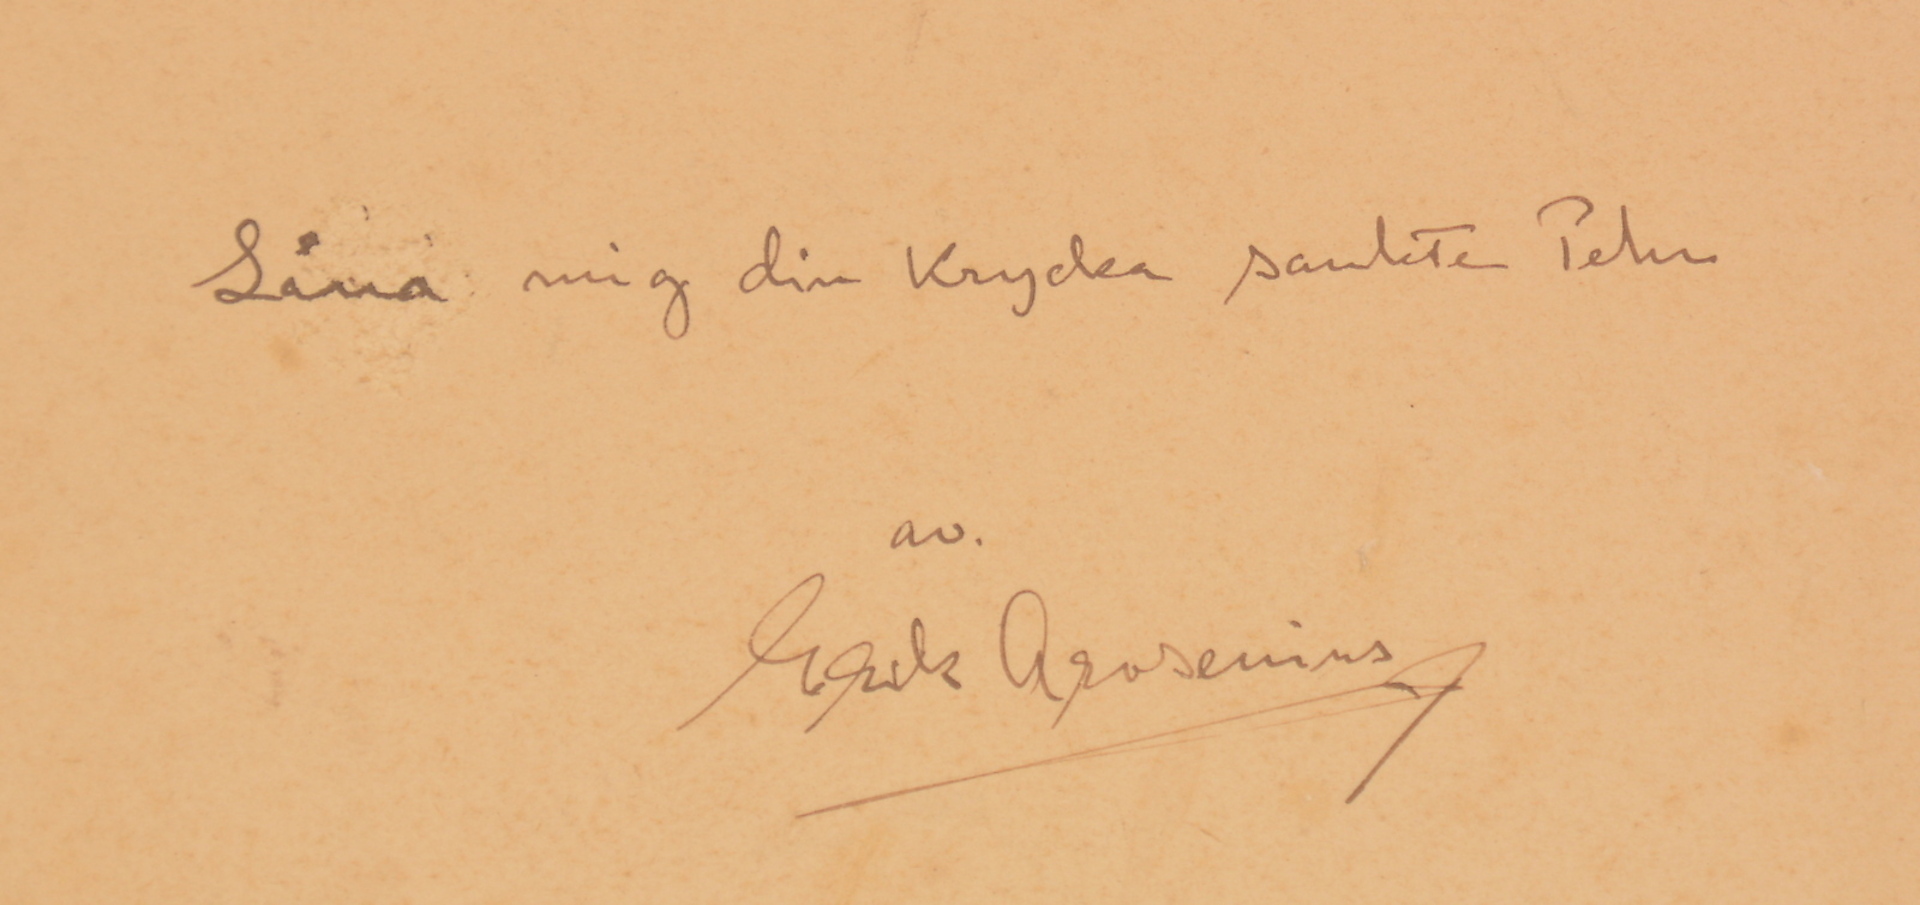 Låna mig din Krycka sankte Pehr
av.
Erik Arosenius